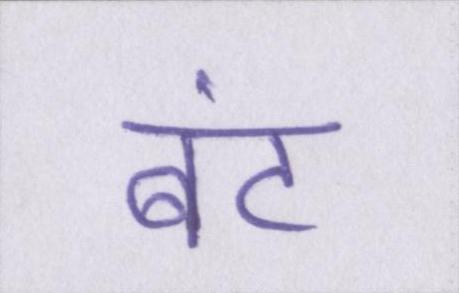 बंट